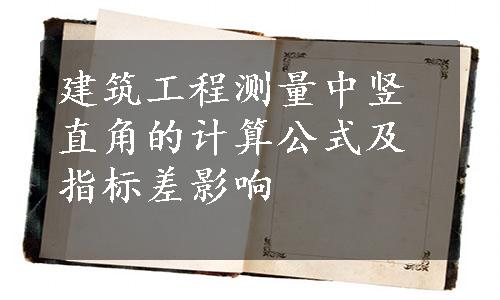 建筑工程测量中竖
直角的计算公式及
指标差影响